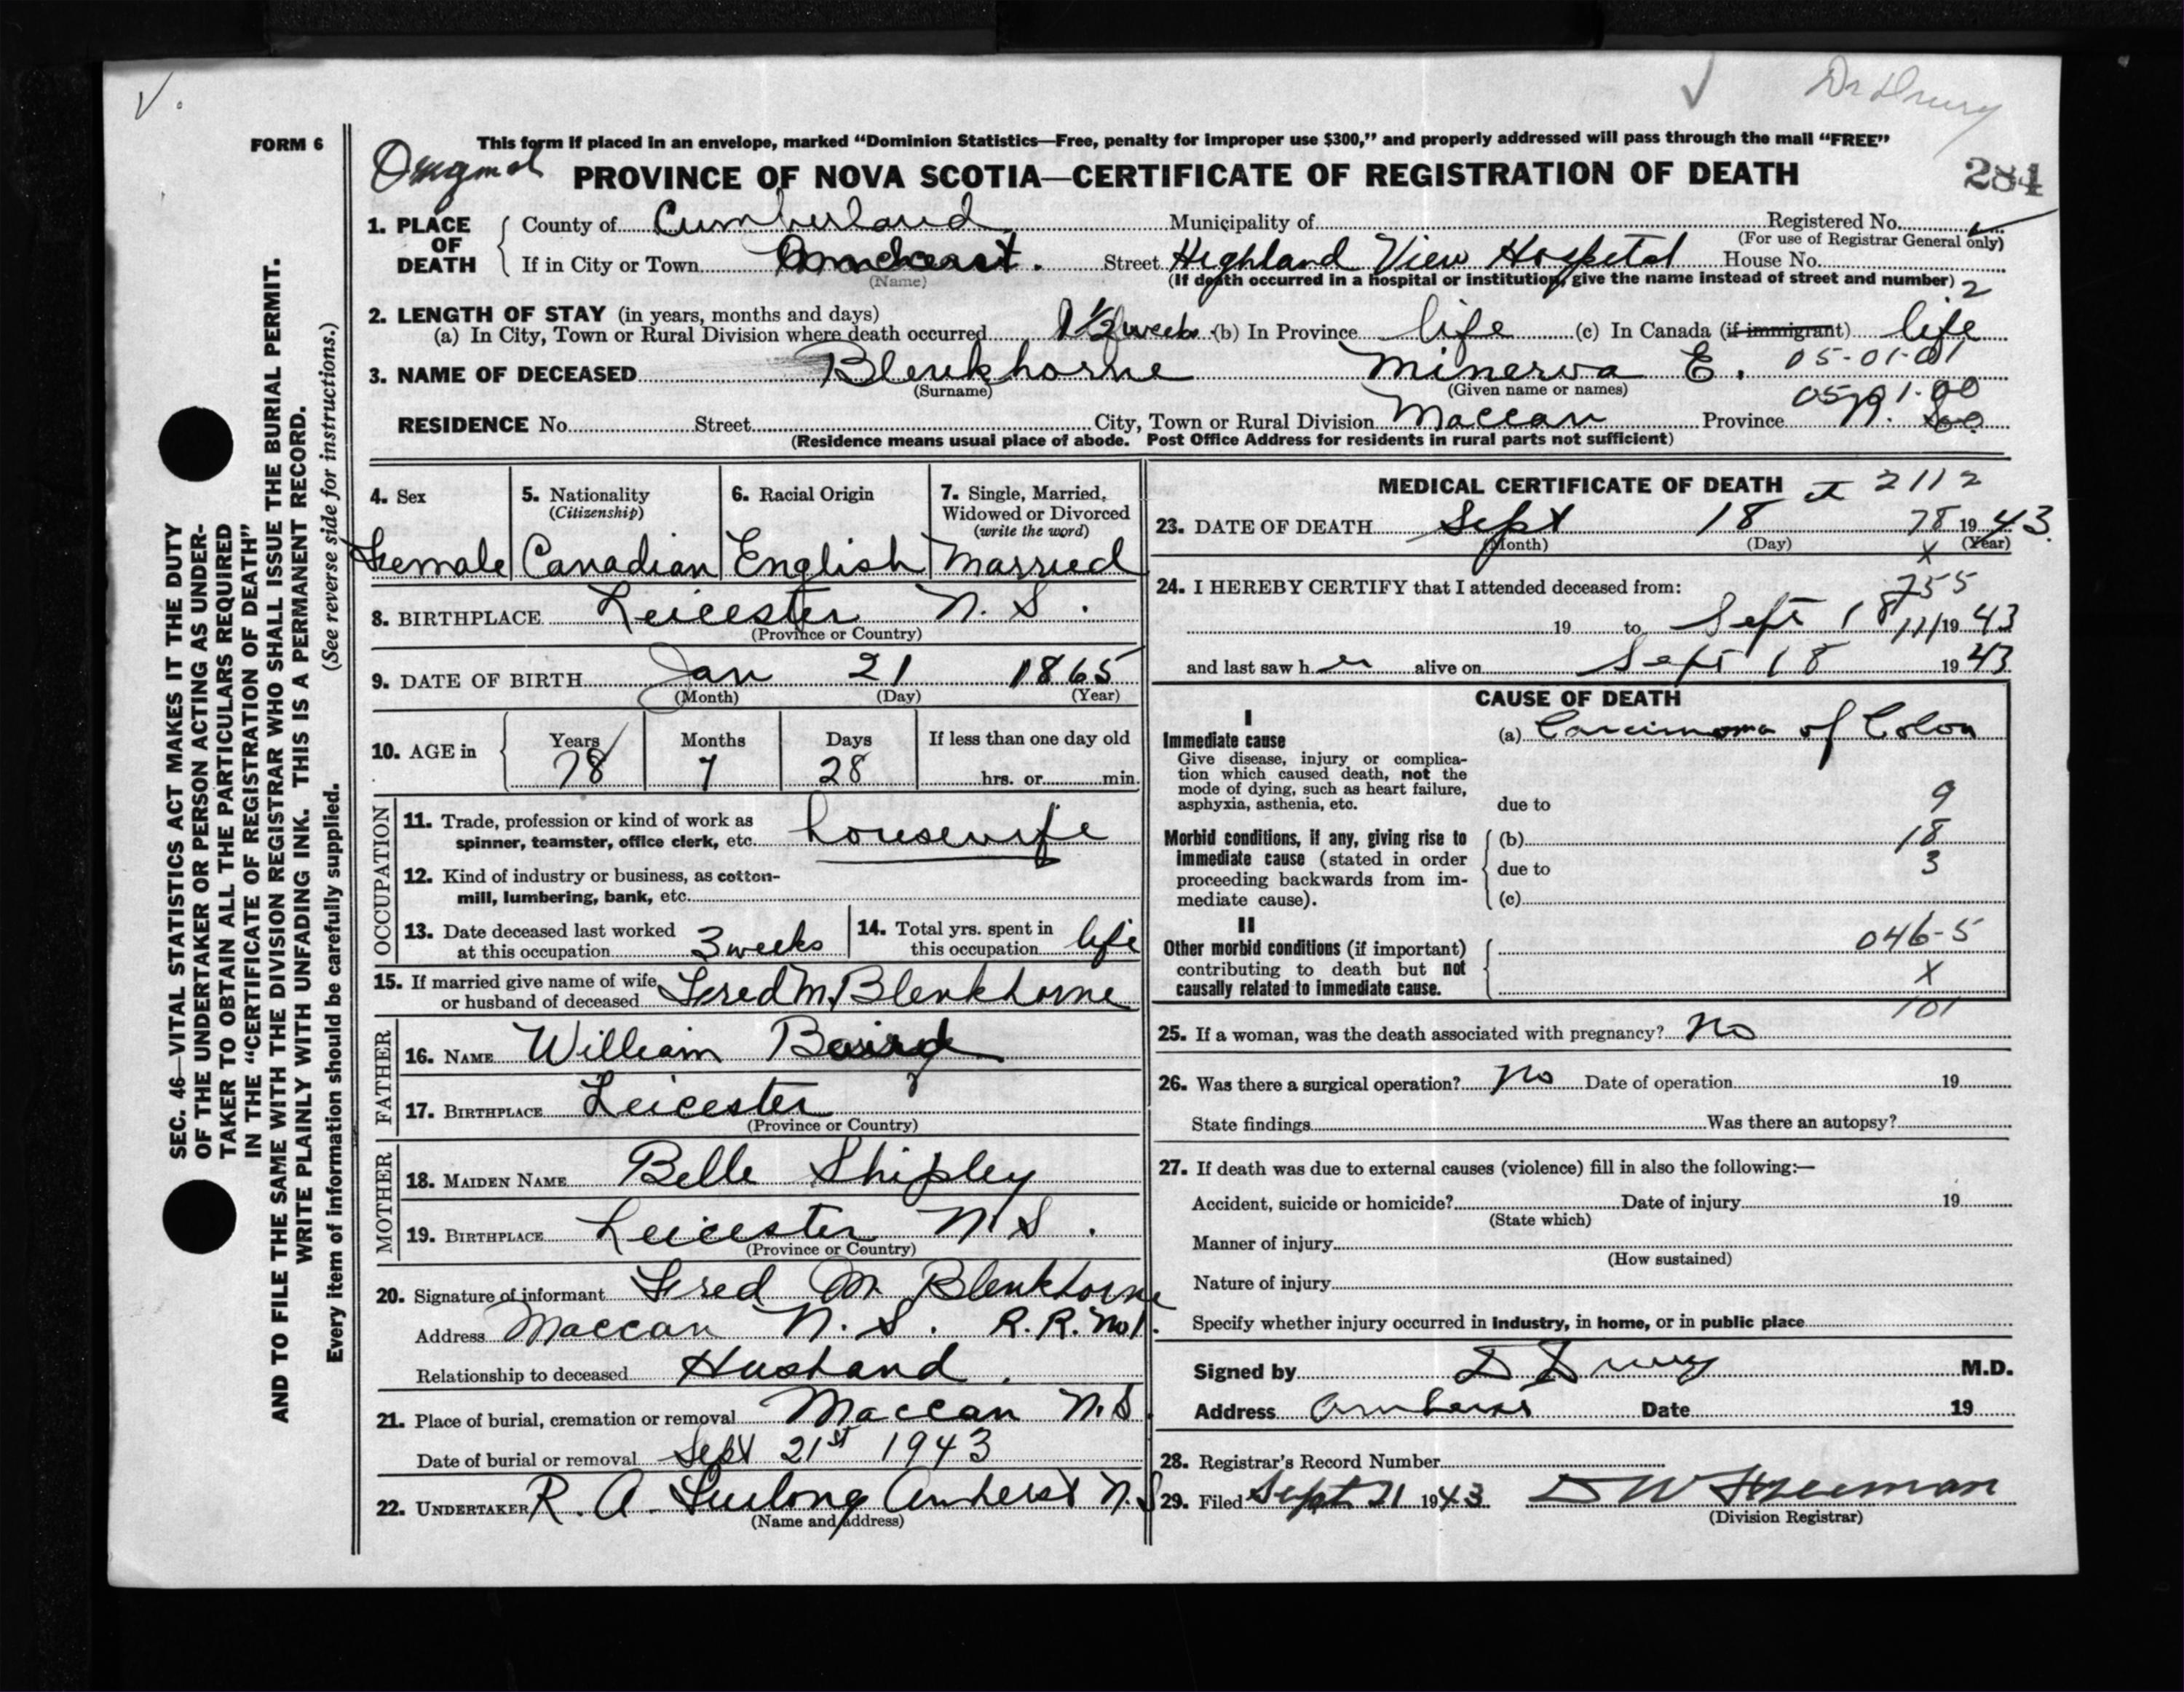 V.
✓ Dr Drury
FORM 6
This form if placed in an envelope, marked “Dominion Statistics—Free, penalty for improper use $300,” and properly addressed will pass through the mail “FREE”
Original PROVINCE OF NOVA SCOTIA—CERTIFICATE OF REGISTRATION OF DEATH 284
1. PLACE OF DEATH County of Cumberland Municipality of Registered No.
(For use of Registrar General only)
If in City or Town Amherst. Street Highland View Hospital House No.
(Name) (If death occurred in a hospital or institution, give the name instead of street and number) 2
2. LENGTH OF STAY (in years, months and days)
(a) In City, Town or Rural Division where death occurred 1½ weeks (b) In Province life (c) In Canada (if immigrant) life
3. NAME OF DECEASED Blenkhorne Minerva E. 05-01-01
(Surname) (Given name or names) 05-01-00
RESIDENCE No. Street City, Town or Rural Division Maccan Province N.
(Residence means usual place of abode. Post Office Address for residents in rural parts not sufficient)
4. Sex 5. Nationality 6. Racial Origin 7. Single, Married,
(Citizenship) Widowed or Divorced
(write the word)
Female Canadian English Married
8. BIRTHPLACE Leicester N. S.
(Province or Country)
9. DATE OF BIRTH Jan 21 1865
(Month) (Day) (Year)
10. AGE in Years Months Days If less than one day old
78 7 28 hrs. or min.
OCCUPATION
11. Trade, profession or kind of work as
spinner, teamster, office clerk, etc. housewife
12. Kind of industry or business, as cotton-
mill, lumbering, bank, etc.
13. Date deceased last worked
at this occupation 3 weeks
14. Total yrs. spent in
this occupation life
15. If married give name of wife
or husband of deceased Fred M. Blenkhorne
FATHER
16. NAME William Baird
17. BIRTHPLACE Leicester
(Province or Country)
MOTHER
18. MAIDEN NAME Belle Shipley
19. BIRTHPLACE Leicester N S.
(Province or Country)
20. Signature of informant Fred M. Blenkhorne
Address Maccan N. S. R. R. No 1.
Relationship to deceased Husband.
21. Place of burial, cremation or removal Maccan N.S.
Date of burial or removal Sept 21st 1943
22. UNDERTAKER R. A. Furlong Amherst N.S
(Name and address)
MEDICAL CERTIFICATE OF DEATH 2112
23. DATE OF DEATH Sept 18 78 19 43.
(Month) (Day) (Year)
X
24. I HEREBY CERTIFY that I attended deceased from: 755
19 to Sept 18 111 19 43
and last saw her alive on Sept 18 19 43
CAUSE OF DEATH
I
Immediate cause (a) Carcinoma of Colon
Give disease, injury or complica-
tion which caused death, not the
mode of dying, such as heart failure,
asphyxia, asthenia, etc. due to 9
Morbid conditions, if any, giving rise to (b) 18
immediate cause (stated in order
proceeding backwards from im- due to 3
mediate cause). (c)
II
Other morbid conditions (if important) 046-5
contributing to death but not X
causally related to immediate cause.
101
25. If a woman, was the death associated with pregnancy? No
26. Was there a surgical operation? No Date of operation 19
State findings Was there an autopsy?
27. If death was due to external causes (violence) fill in also the following:—
Accident, suicide or homicide? Date of injury 19
(State which)
Manner of injury
(How sustained)
Nature of injury
Specify whether injury occurred in industry, in home, or in public place
Signed by D Drury M.D.
Address Amherst Date 19
28. Registrar's Record Number
29. Filed Sept 21 1943 D W Freeman
(Division Registrar)
SEC. 46—VITAL STATISTICS ACT MAKES IT THE DUTY
OF THE UNDERTAKER OR PERSON ACTING AS UNDER-
TAKER TO OBTAIN ALL THE PARTICULARS REQUIRED
IN THE “CERTIFICATE OF REGISTRATION OF DEATH”
AND TO FILE THE SAME WITH THE DIVISION REGISTRAR WHO SHALL ISSUE THE BURIAL PERMIT.
WRITE PLAINLY WITH UNFADING INK. THIS IS A PERMANENT RECORD.
Every item of information should be carefully supplied. (See reverse side for instructions.)